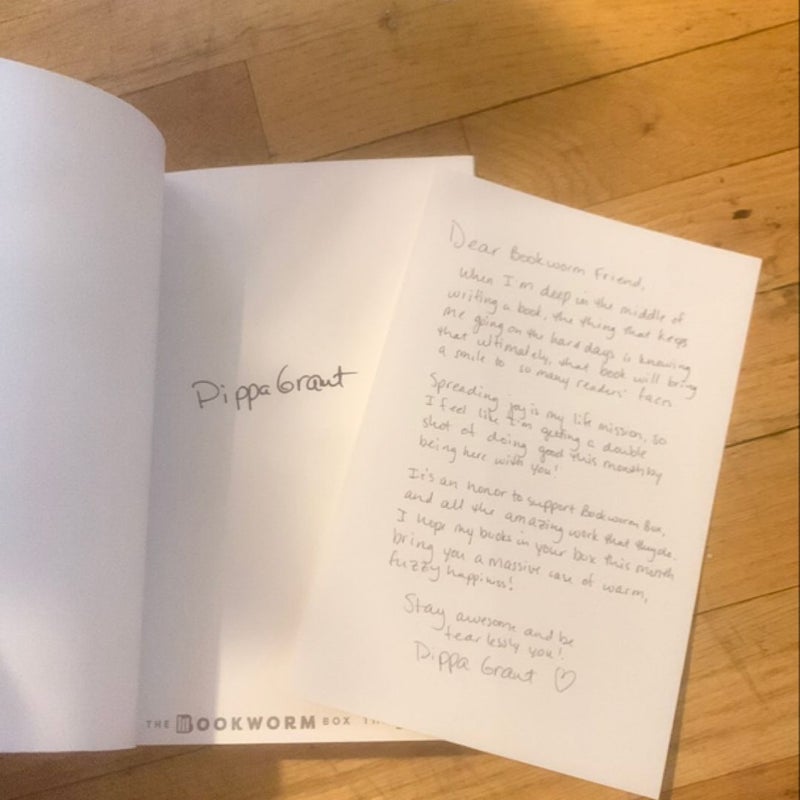 Pippa Grant
THE BOOKWORM BOX
Dear Bookworm Friend,
When I'm deep in the middle of
writing a book, the thing that keeps
me going on the hard days is knowing
that ultimately, that book will bring
a smile to so many readers' faces
Spreading joy is my life mission, so
I feel like I'm getting a double
shot of doing good this month by
being here with you!
It's an honor to support Bookworm Box,
and all the amazing work that they do.
I hope my books in your box this month
bring you a massive case of warm,
fuzzy happiness!
Stay awesome and be
fearlessly you!
Pippa Grant ♡